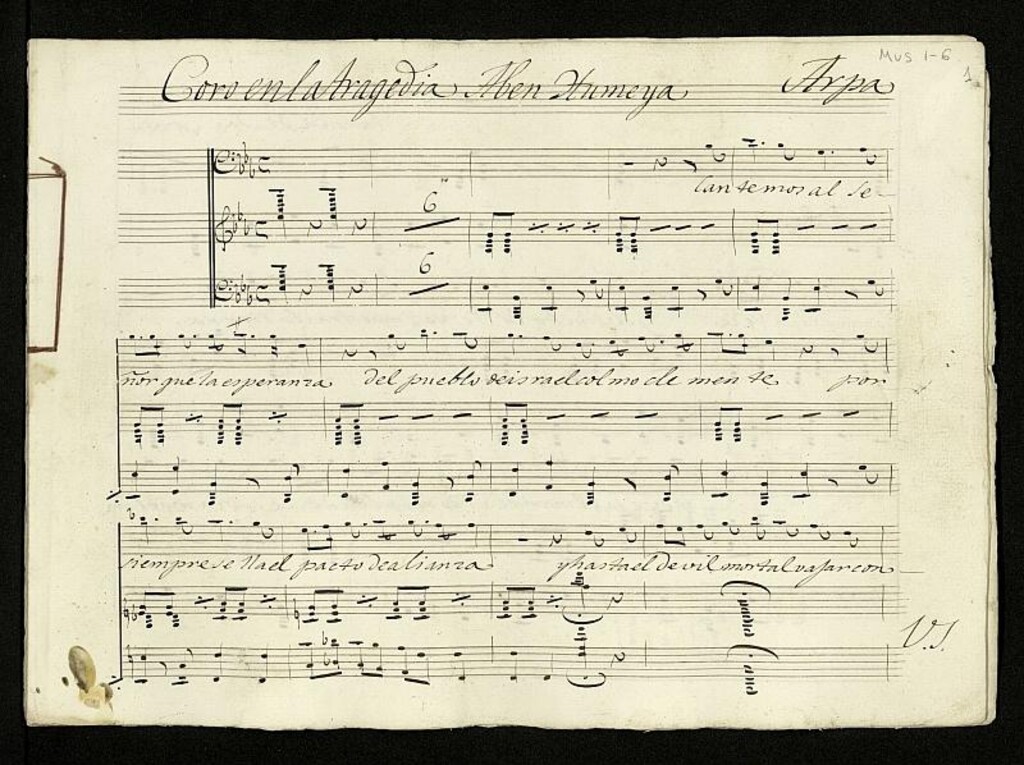 Mus 1-6
1
Coro en la tragedia Aben Humeya Arpa
Cantemos al se-
6
6
ñor que la esperanza del pueblo de israel colmo cle men te por
siempre sella el pacto de alianza y hasta el devil mortal vajar con
V.S.